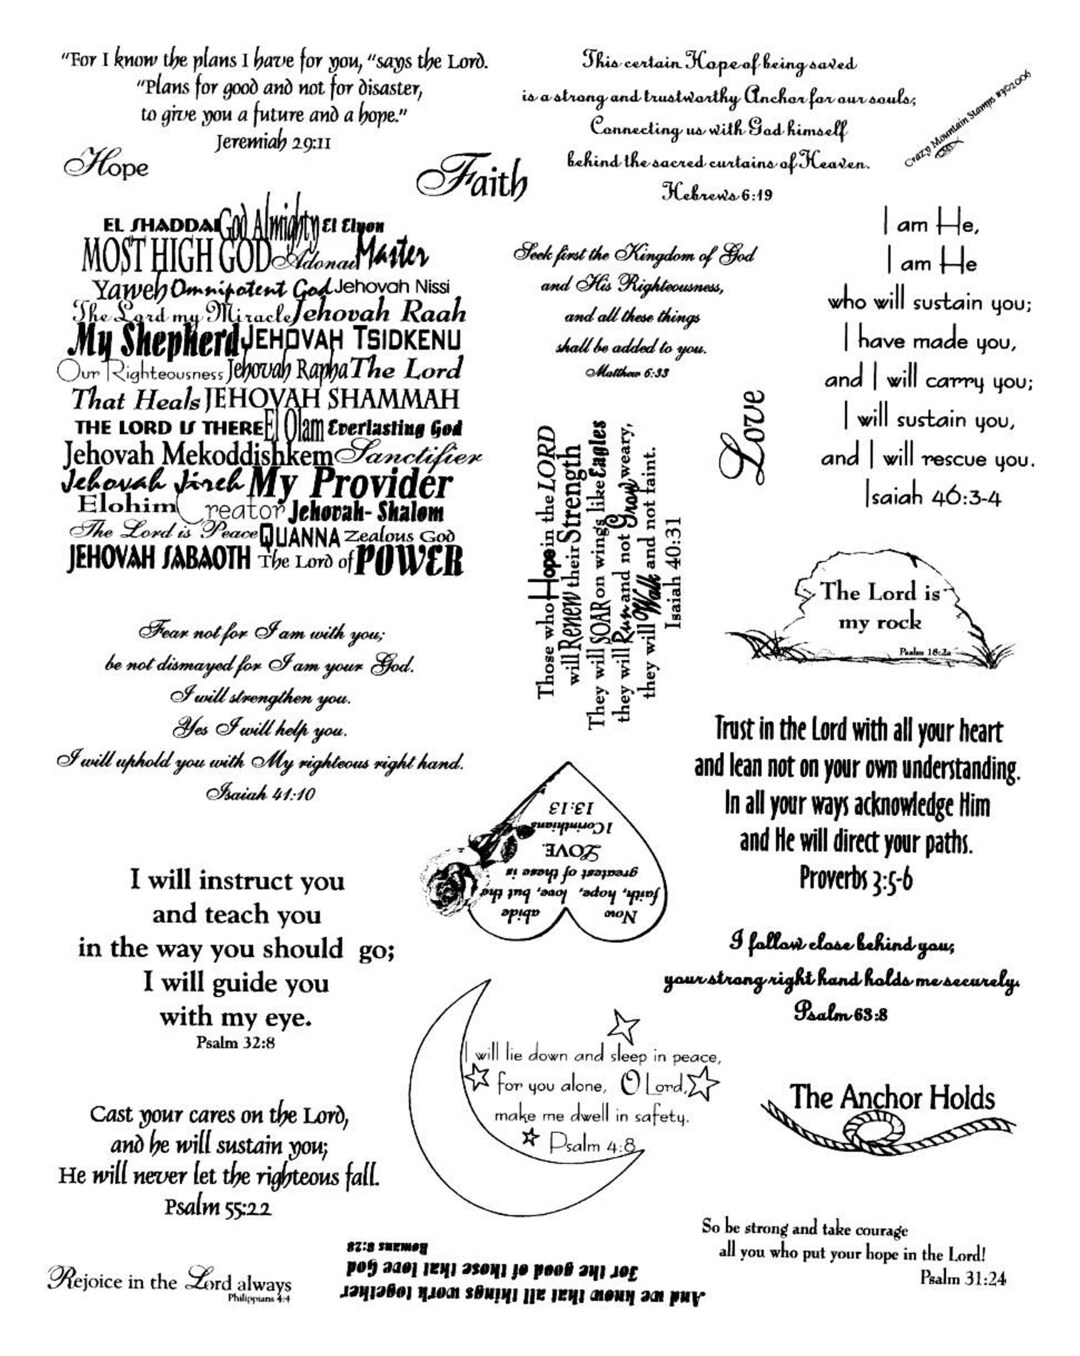 "For I know the plans I have for you, "says the Lord.
"Plans for good and not for disaster,
to give you a future and a hope."
Jeremiah 29:11
This certain Hope of being saved
is a strong and trustworthy Anchor for our souls;
Connecting us with God himself
behind the sacred curtains of Heaven.
Hebrews 6:19
Crazy Mountain Stamps #3©2006
Hope
Faith
EL SHADDAI God Almighty El Elyon
MOST HIGH GOD Adonai Master
Yaweh Omnipotent God Jehovah Nissi
The Lord my Miracle Jehovah Raah
My Shepherd JEHOVAH TSIDKENU
Our Righteousness Jehovah Rapha The Lord
That Heals JEHOVAH SHAMMAH
THE LORD IS THERE El Olam Everlasting God
Jehovah Mekoddishkem Sanctifier
Jehovah Jireh My Provider
Elohim Creator Jehovah- Shalom
The Lord is Peace QUANNA Zealous God
JEHOVAH SABAOTH The Lord of POWER
Seek first the Kingdom of God
and His Righteousness,
and all these things
shall be added to you.
Matthew 6:33
I am He,
I am He
who will sustain you;
I have made you,
and I will carry you;
I will sustain you,
and I will rescue you.
Isaiah 46:3-4
Love
Those who Hope in the LORD
will Renew their Strength
They will SOAR on wings like Eagles
they will Run and not Grow weary,
they will Walk and not faint.
Isaiah 40:31
The Lord is
my rock
Psalm 18:2a
Fear not for I am with you;
be not dismayed for I am your God.
I will strengthen you.
Yes I will help you.
I will uphold you with My righteous right hand.
Isaiah 41:10
Trust in the Lord with all your heart
and lean not on your own understanding.
In all your ways acknowledge Him
and He will direct your paths.
Proverbs 3:5-6
Now abide
faith, hope, love, but the
greatest of these is
LOVE.
1 Corinthians
13:13
I will instruct you
and teach you
in the way you should go;
I will guide you
with my eye.
Psalm 32:8
I follow close behind you;
your strong right hand holds me securely.
Psalm 63:8
I will lie down and sleep in peace,
for you alone, O Lord,
make me dwell in safety.
Psalm 4:8
The Anchor Holds
Cast your cares on the Lord,
and he will sustain you;
He will never let the righteous fall.
Psalm 55:22
So be strong and take courage
all you who put your hope in the Lord!
Psalm 31:24
Rejoice in the Lord always
Philippians 4:4
And we know that all things work together
for the good of those that love God
Romans 8:28